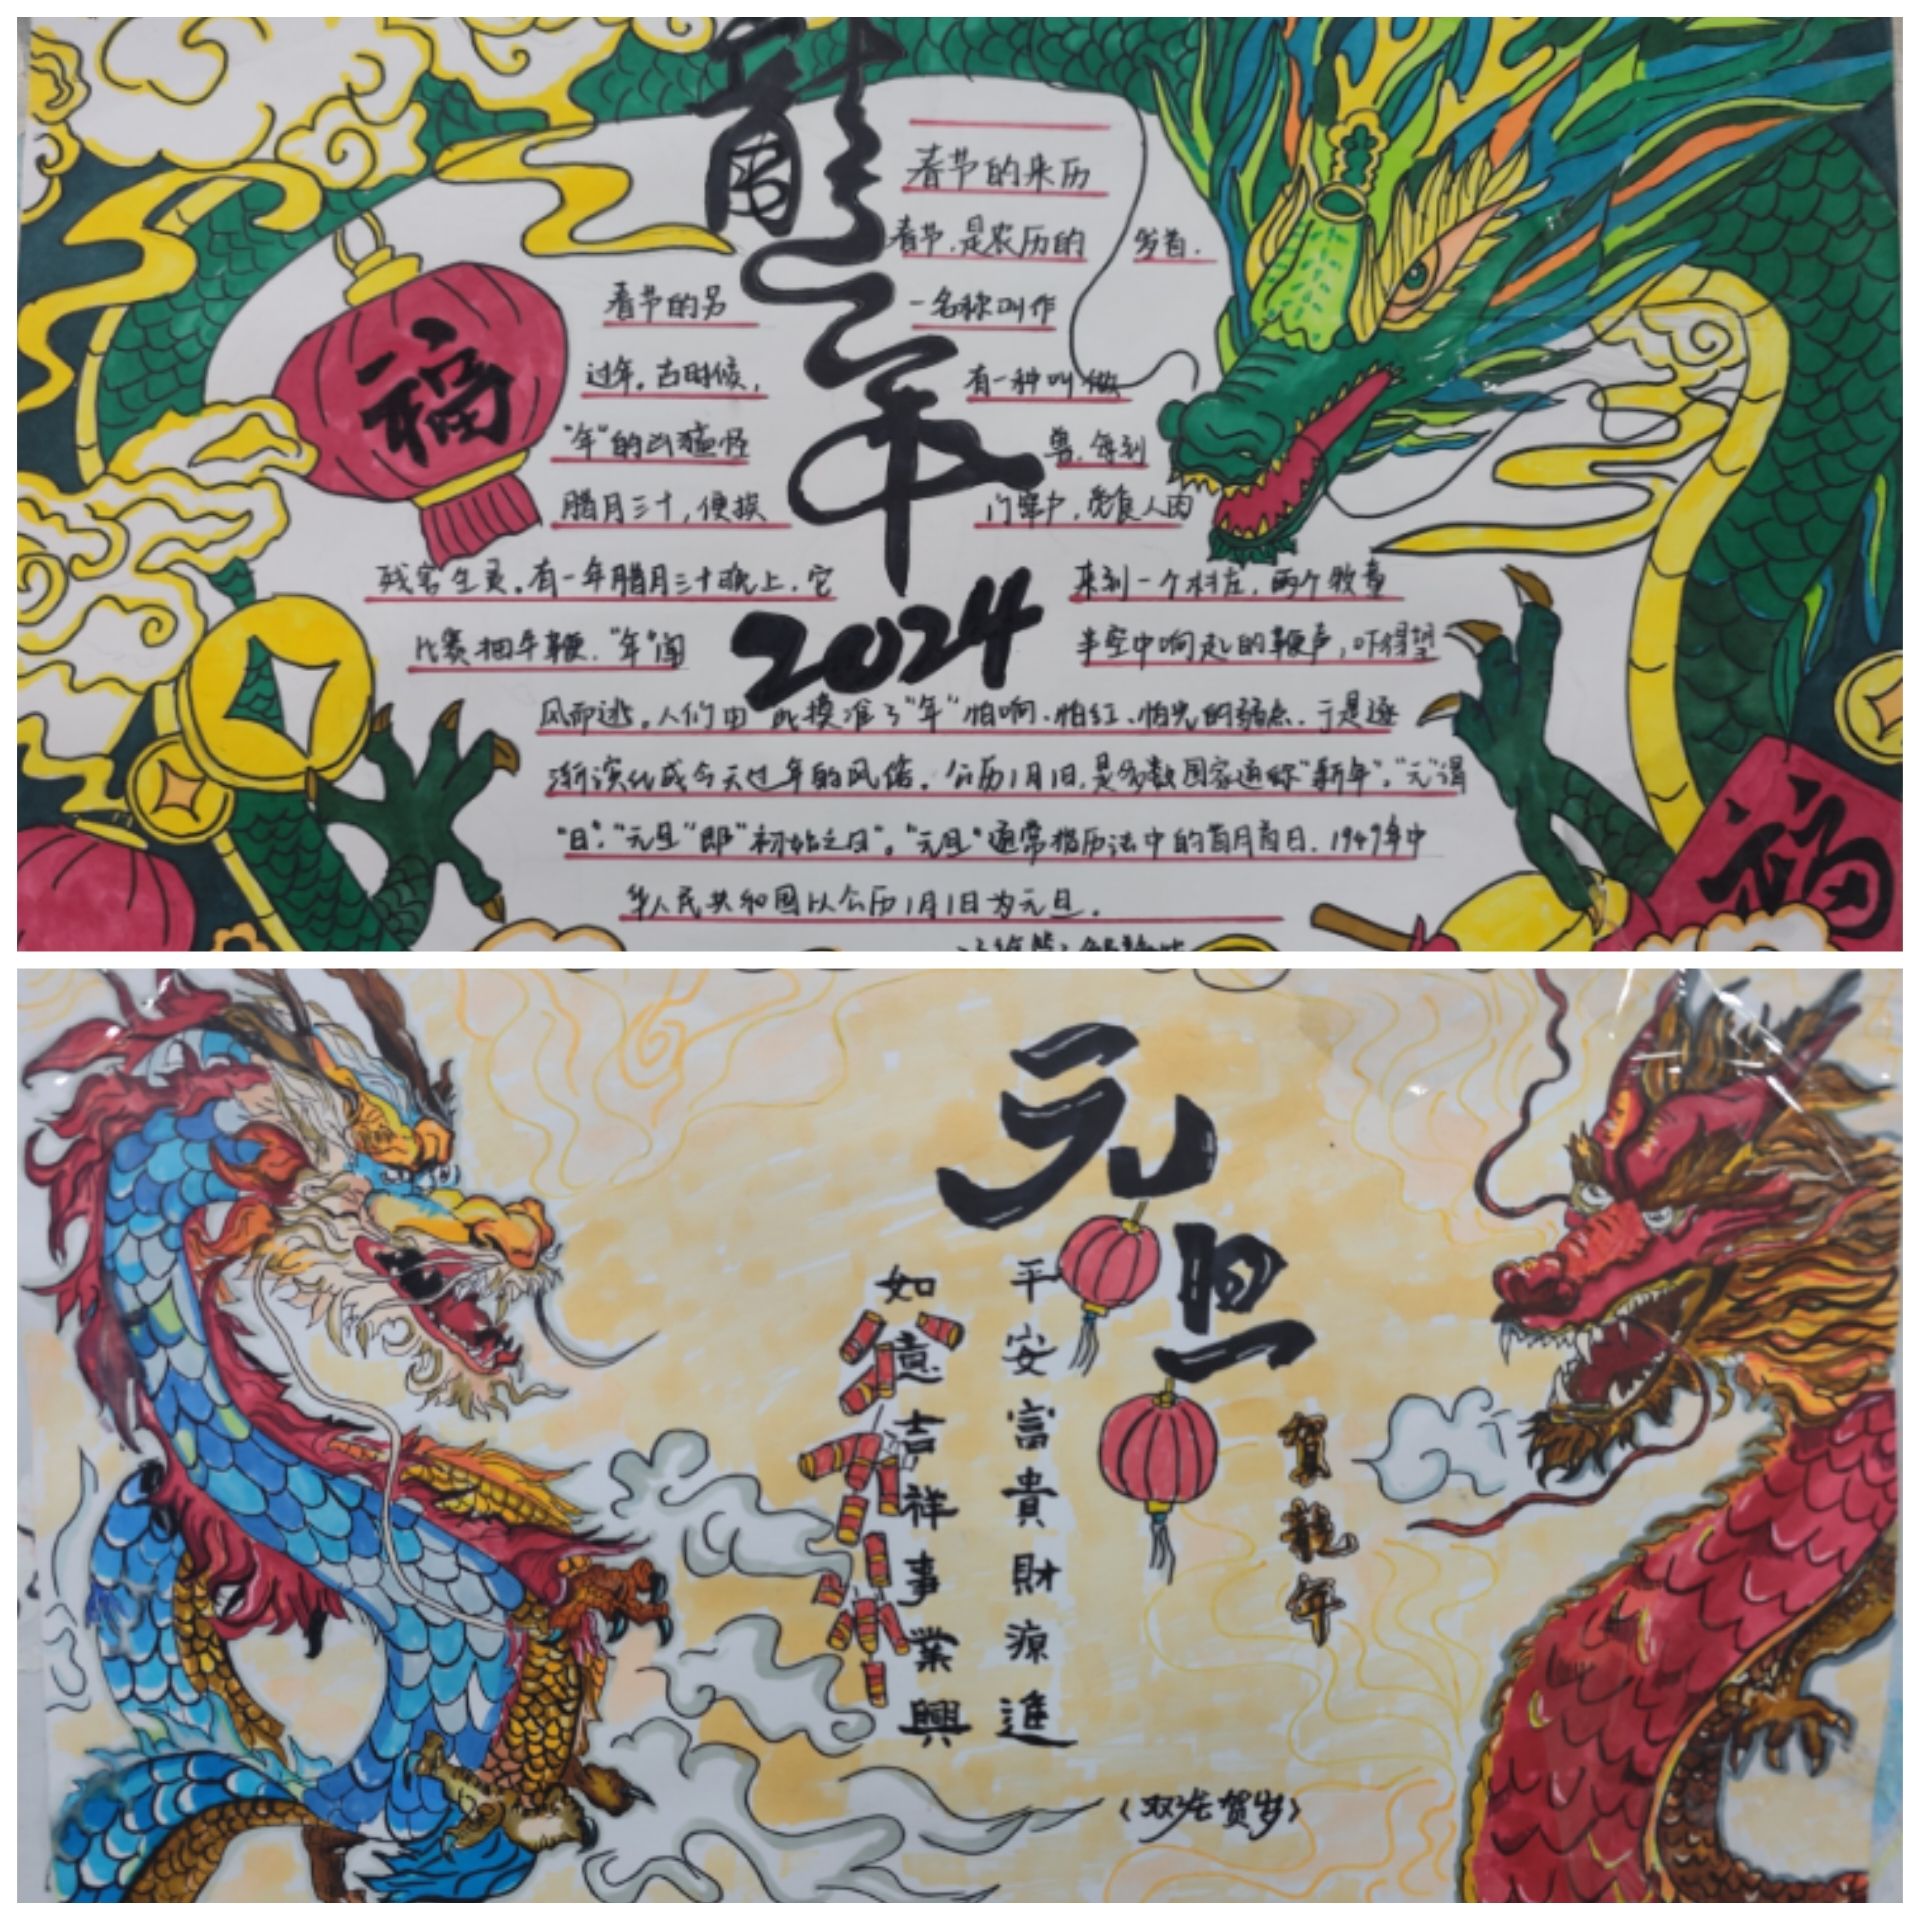 龍年
2024
福
春节的来历
春节,是农历的 岁首.
春节的另 一名称叫作
过年。古时候, 有一种叫做
"年"的凶猛怪 兽,每到
腊月三十,便挨 门窜户,觅食人肉
残害生灵。有一年腊月三十晚上,它 来到一个村庄,两个牧童
比赛 牛鞭,"年"闻 半空中响起的鞭声,吓得望
风而逃。人们由此摸准了"年"怕响、怕红、怕光的弱点,于是逐
渐演化成今天过年的风俗。公历1月1日,是多数国家通称"新年"。"元"谓
"日"."元旦"即"初始之日"。"元旦"通常指历法中的首月首日.1949年中
华人民共和国以公历1月1日为元旦。
福
元旦
平安富貴財源進
如意吉祥事業興
贺龍年
〈双龙贺岁〉